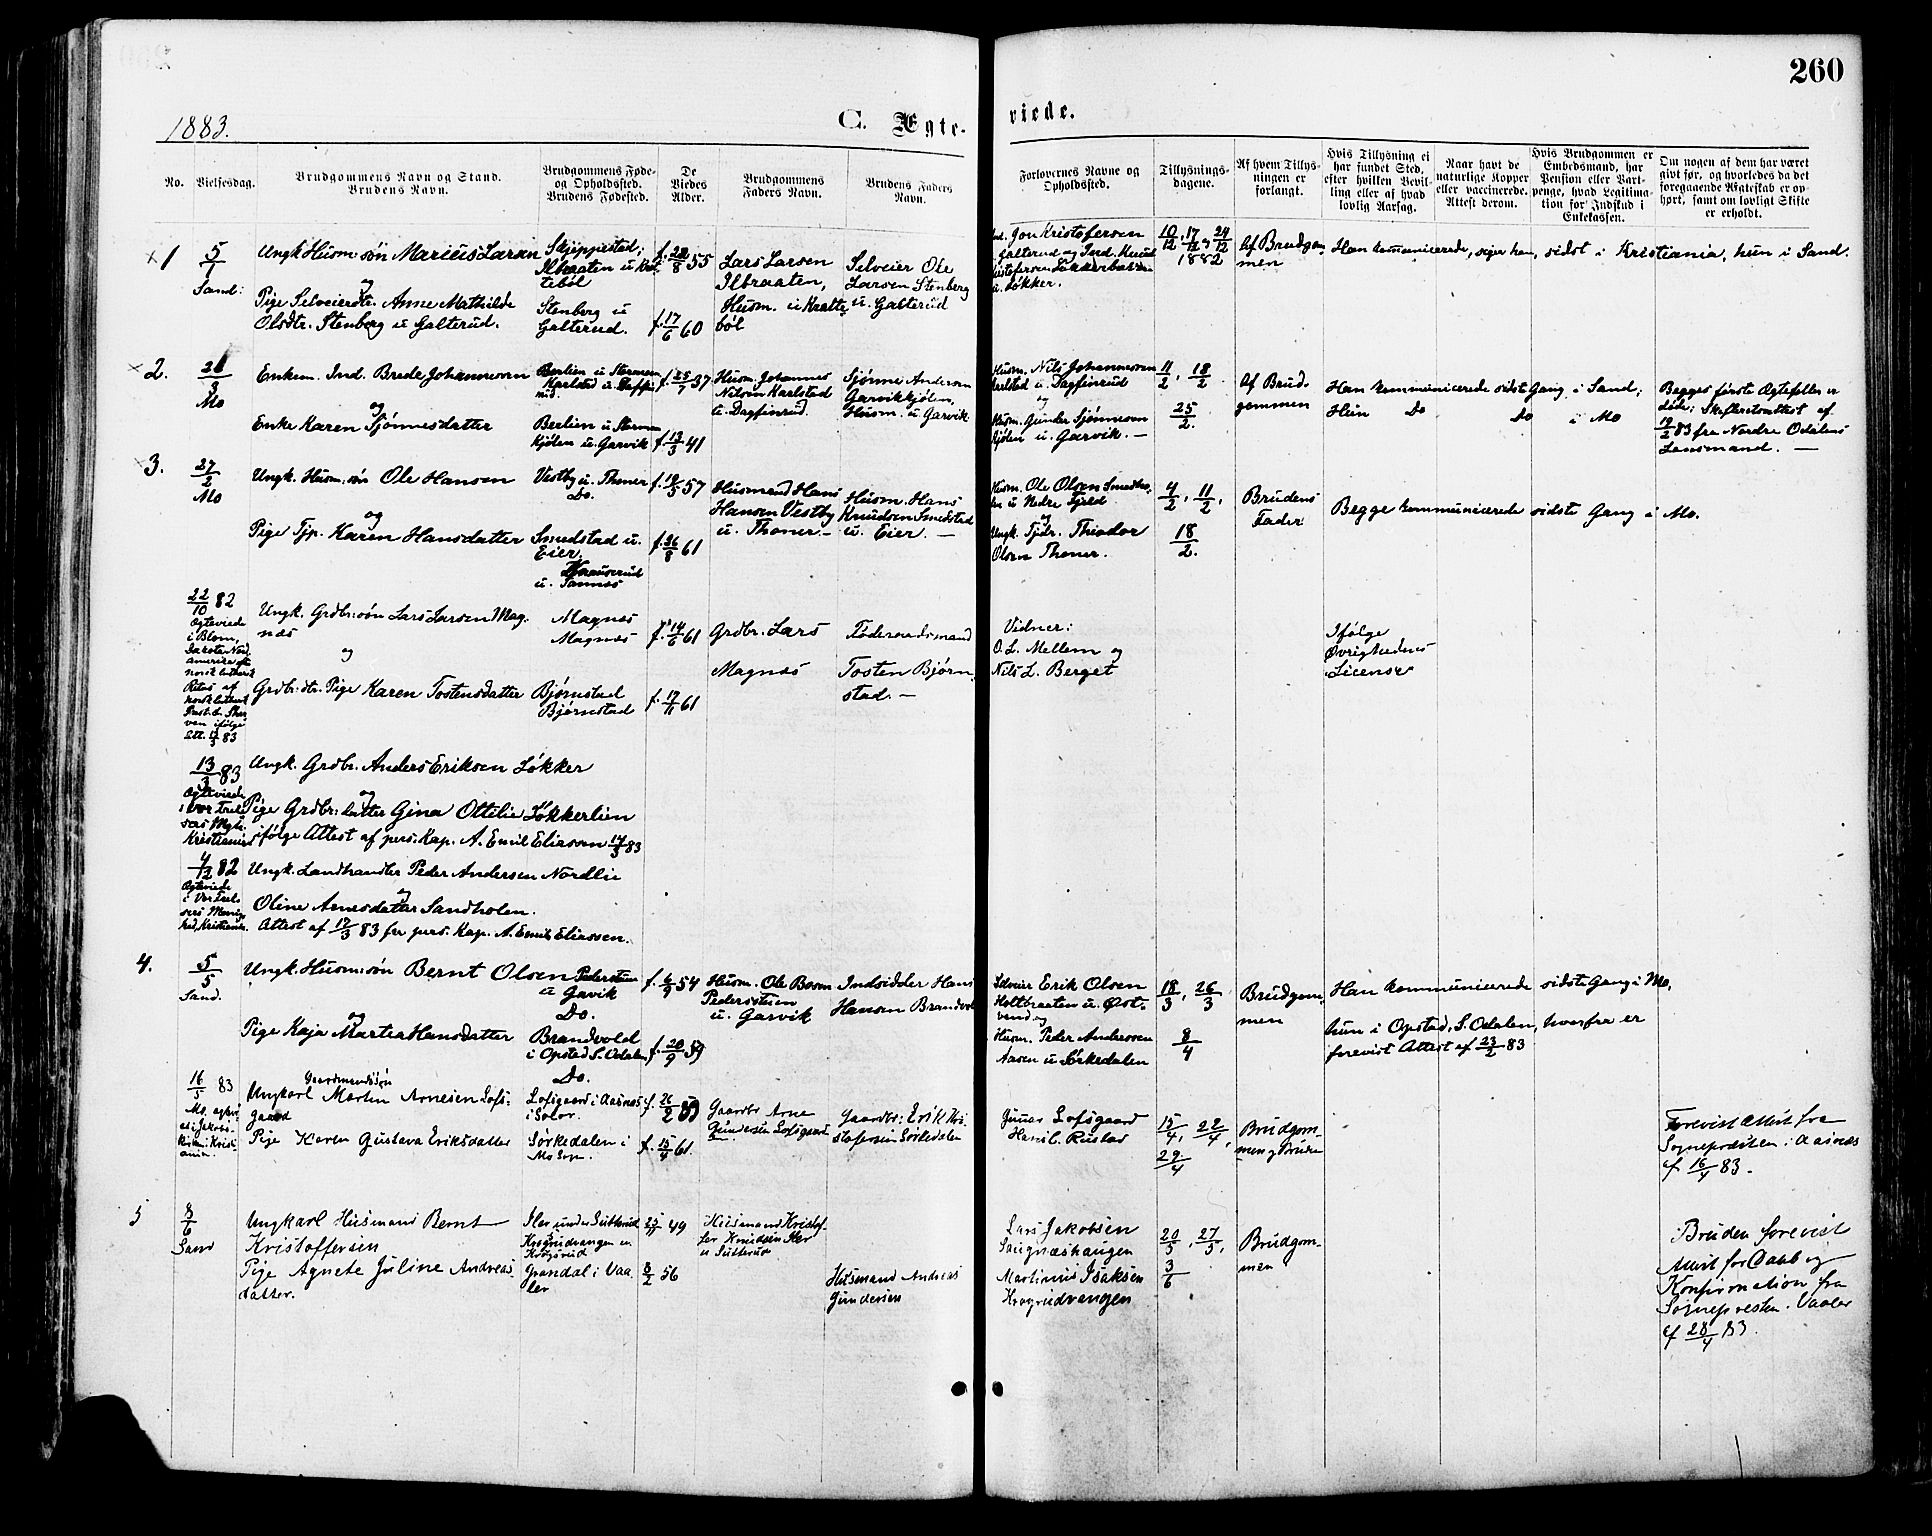 260
1883.
C. Ægte-
viede.
No.
Vielsesdag.
Brudgommens Navn og Stand.
Brudens Navn.
Brudgommens Føde-
og Opholdssted.
Brudens Fødested.
De
Viedes
Alder.
Brudgommens
Faders Navn.
Brudens Faders
Navn.
Forlovernes Navne og
Opholdssted.
Tillysnings-
dagene.
Af hvem Tillys-
ningen er
forlangt.
Hvis Tillysning ei
har fundet Sted,
efter hvilken Bevil-
ling eller af hvad
lovlig Aarsag.
Naar havt de
naturlige Kopper
eller vaccinerede.
Attest derom.
Hvis Brudgommen er
Enkedsmand, har
Pension eller Vart-
penge, hvad Legitima-
tion for Indskud i
Enkekassen.
Om nogen af dem har været
givt før, og hvorledes da det
foregaaende Ægteskab er op-
hørt, samt om lovligt Skifte
er erholdt.
×1
5/1
Sand:
Ungk. Husm. søn Marius Larsen
og
Pige Selveierdtr. Anne Mathilde
Olsdtr. Stenberg u Galterud.
Skjeppestad;
Ilbraaten u
tebøl
Stenberg u
Galterud.
f. 28/8 55
f. 17/6 60
Lars Larsen
Ilbraaten,
Husm. u Kratte-
bøl
Selveier Ole
Larsen Stenberg
u. Galterud
Jon Kristofersen
Galterud og Ind. Knud
u. Løkker.
10/12, 17/12 og 24/12
1882
Af Brudgom-
men
Han kommunicerede, siger han, sidst i Kristiania, hun i Sand.
×2.
2/3
Mo
Enkem. Ind. Brede Johannessen
og
Enke Karen Sjønnesdatter
Berlien u Stermoen
Karlstad u Daffin-
rud.
Berlien u Sterm
Kjølen u. Garvik
f. 25/7 37
f. 13/3 41
Husm. Johannes
Nilsen Karlstad
u. Dagfinrud.
Sjønne Andersen
Garvikkjølen,
Husm. u. Garvik
Husm. Nils Johannessen
Karlstad u. Dagfinrud
og
Husm. Gunder Sjønnesen
Kjølen u. Garvik. —
11/2, 18/2
25/2.
Af Brud-
gommen
Han kommunicerede sidste Gang i Sand;
Hun Do Do i Mo
Begges første Ægtefeller er
døde; Skifteretsattest af
83 fra Nordre Odalens
Lensmand. —
3.
27/2
Mo
Ungk. Husm. søn Ole Hansen
og
Pige Tjp. Karen Hansdatter
Vestby u. Thoner
Do.
Smedstad u.
Eier.
u. Tannæs
f. 19/5 57
f. 26/8 61
Husmand Hans
Hansen Vestby
u. Thoner —
Husm. Hans
Knudsen Smedstad
u. Eier. —
Husm. Ole Olsen
u Nedre Fjeld
og
Ungk. Tjdr. Theodor
Olsen Thoner.
4/2, 11/2,
18/2.
Brudens
Fader
Begge kommunicerede sidste Gang i Mo.
22/10 82
Ægteviede
i Blom,
Dakota Nord
amerika
norsk luthersk
Ritus af
norsk luthersk
ifølge
Att. 83
Ungk. Grdbr. søn Lars Larsen Mag-
næs
og
Grdbr. dtr. Pige Karen Tostensdatter
Magnæs
Magnæs
Bjørnstad
Bjørnstad
f. 14/6 61
f. 17/11 61
Grdbr. Lars
Magnæs
Føderaadsmand
Tosten Bjørn-
stad. —
Vidner:
O. L. Mellem og
Nils L. Berget
Ifølge
Øvrighedens
License
13/3 83
Ægteviede
i Vor Frel-
sers Mgh.
Kristiania
Ungk. Grdbr. Anders Eriksen Løkker
og
Pige Grdbr: datter Gina Ottilie Løkkerlien
ifølge Attest af pers. Kap. A. Emil Eliassen 17/3 83
4/12 82
Ægteviede
i Vor Frel-
sers Menig-
hed, Kristiania.
Ungk. Landhandler Peder Andersen Nordlie
og
Oline Arnesdatter Sandholen.
Attest af 17/3 83 fra pers. Kap. A. Emil Eliassen.
4.
5/5
Sand.
Ungk. Husm: søn Bernt Olsen
og
Pige Kaja Martea Hansdatter
Pederstuen
u Garvik
Do.
Brandvold
i Opstad S. Odalen
Do.
f. 6/9 54
f. 20/9 59
Husm. Ole Bosen
Pederstuen
u. Garvik
Indsidder Hans
Hansen Brandvold
Selveier Erik Olsen
Holtbraaten u. Øst-
vend og
Husm. Peder Andersen
Aasen u Sørkedalen
18/3, 26/3
8/4
Brudgom-
men
Han kommunicerede sidste Gang i Mo,
hun i Opstad, S. Odalen, hvorfra er
forevist Attest af 23/2 83
16/5 83
Mo. egtevi
et i Jakobs-
kirken i Kristi-
ania.
Gaardmandssøn
Ungkarl Martin Arnesen Lofs-
gaard
Pige Karen Gustava Eriksdatter
Lofsgaard i Aasnes
i Solør.
Sørkedalen i
Mo Sogn.
f. 26/2 59
f. 15/4 61
Gaardbr. Arne
Gundersen Lofsgaard
Gaardbr: Erik Kri-
stofersen Sørkedalen
Gunar Lofsgaard
Hans L. Rustad
15/4, 22/4,
29/4
Brudgom-
men og Bruden
Forevist Attest fra
Sognepræsten i Aasnæs
af 16/4 83.
5
8/6
Sand
Ungkarl Husmand Bernt
Kristoffersen
Pige Agnete Juline Andreas-
datter.
Iler under Sutterud
Krogrudvangen u.
Krogsrud
Grandal i Vaa-
ler
49
8/2 56
Husmand Kristof-
fer Knudsen Iler
u Sutterud
Husmand Andreas
Gundersen
Lars Jakobsen
Saugnæshaugen
Martinius Isaksen
Krogrudvangen
20/5, 27/5,
3/6
Brudgom-
men
Bruden forevist
Attest for Daab og
Konfirmation fra
Sognepresten i Vaaler
af 28/4 83.